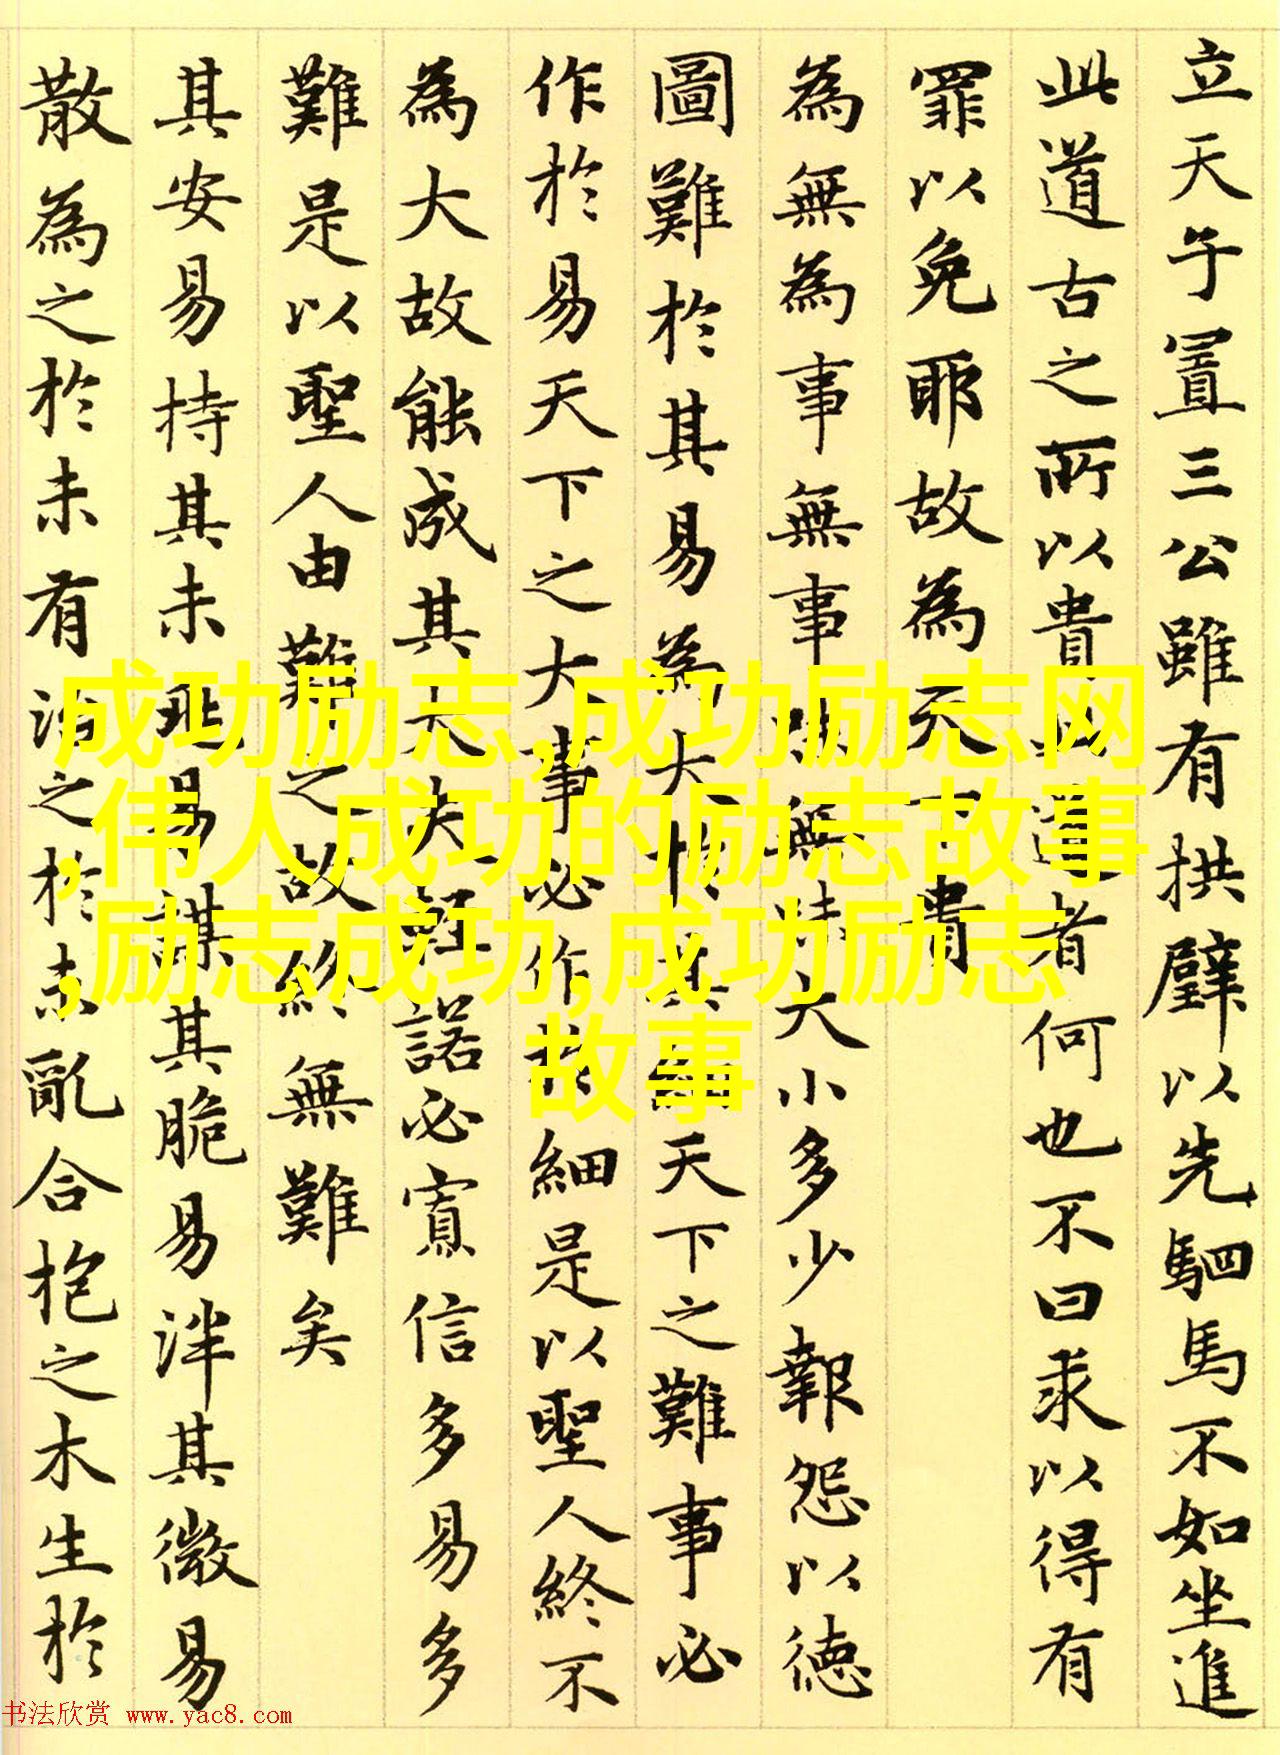 立天子置三公雖有拱璧以先駟馬不如坐進
此道古之所以貴此道者何也不曰求以得有
罪以免耶故為天下貴
為無為事無事味無味大小多少報怨以徳
圖難於其易為大於其細天下之難事必
作於易天下之大事必作於細是以聖人終不
為大故能成其大夫輕諾必寡信多易多
難是以聖人由難之故終無難矣
其安易持其未兆易謀其脆易泮其微易
散為之於未有治之於未亂合抱之木生於
成功励志,成功励志网
,伟人成功的励志故事
,励志成功,成功励志
故事
书法欣赏 www.yac8.com